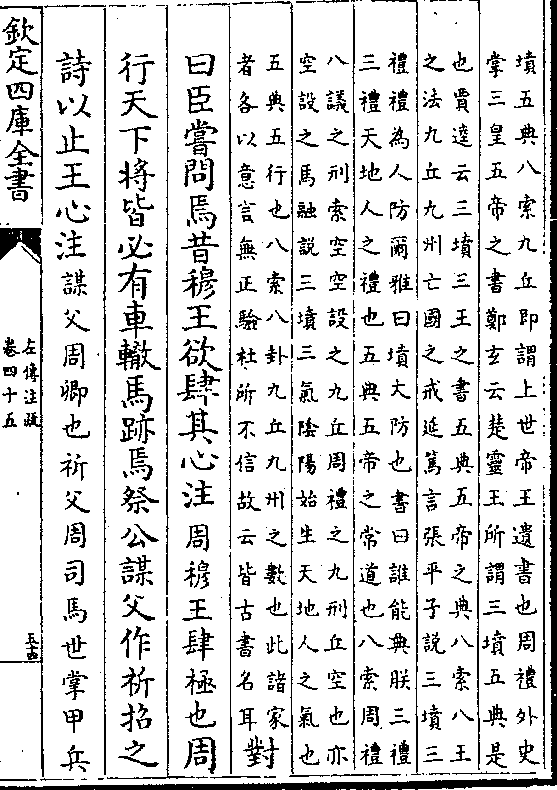 墳五典八索九丘即謂上世帝王遺書也周禮外史
掌三皇五帝之書鄭玄云楚靈王所謂三墳五典是
也賈逵云三墳三王之書五典五帝之典八索八王
之法九丘九州亡國之戒延篤言張平子說三墳三
禮禮為人防爾雅曰墳大防也書曰誰能典朕三禮
三禮天地人之禮也五典五帝之常道也八索周禮
八議之刑索空空設之九丘周禮之九刑丘空也亦
空設之馬融說三墳三氣陰陽始生天地人之氣也
五典五行也八索八卦九丘九州之數也此諸家
者各以意言無正驗杜所不信故云皆古書名耳
對
曰臣嘗問焉昔穆王欲肆其心注周穆王肆極也周
行天下將皆必有車轍馬跡焉祭公謀父作祈招之
詩以止王心注謀父周卿也祈父周司馬世掌甲兵
欽定四庫全書
左傳注疏
卷四十五